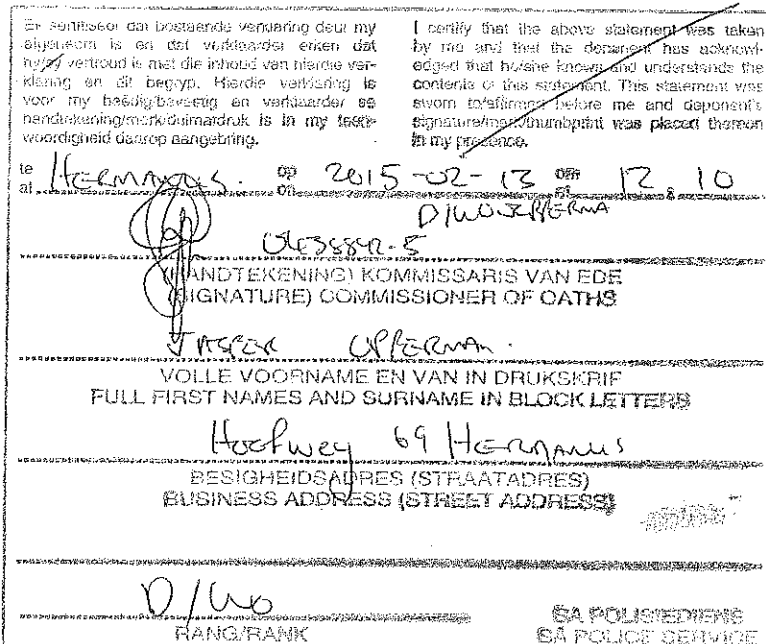 Ek sertifiseer dat bostaande verklaring deur my
afgeneem is en dat verklaarder erken dat
hy/sy vertroud is met die inhoud van hierdie ver-
klaring en dit begryp. Hierdie verklaring is
voor my beëdig/bevestig en verklaarder se
handtekening/merk/duimafdruk is in my teen-
woordigheid daarop aangebring.
I certify that the above statement was taken
by me and that the deponent has acknowl-
edged that he/she knows and understands the
contents of this statement. This statement was
sworn to/affirmed before me and deponent's
signature/mark/thumbprint was placed thereon
in my presence.
te HERMANUS. op 2015-02-13 om 12:10
at on at
(HANDTEKENING) KOMMISSARIS VAN EDE
(SIGNATURE) COMMISSIONER OF OATHS
JASPER OPPERMAN.
VOLLE VOORNAME EN VAN IN DRUKSKRIF
FULL FIRST NAMES AND SURNAME IN BLOCK LETTERS
Hoofweg 69 HERMANUS
BESIGHEIDSADRES (STRAATADRES)
BUSINESS ADDRESS (STREET ADDRESS)
D/WO
RANG/RANK
SA POLISIEDIENS
SA POLICE SERVICE